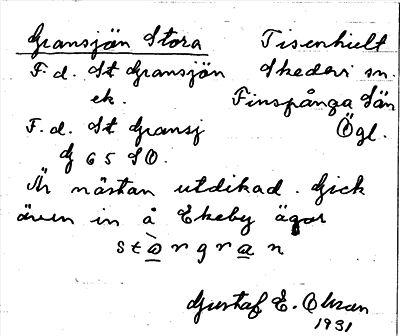 Gransjön Stora Tisenhult
F. d. St Gransjön Skedevi sn.
ek. Finspånga län
F. d. St Gransj Ögl.
G 65 SO.
Är nästan utdikad. Gick
även in å Ekeby ägor
stòrgran
Gustaf E. Olsson
1931